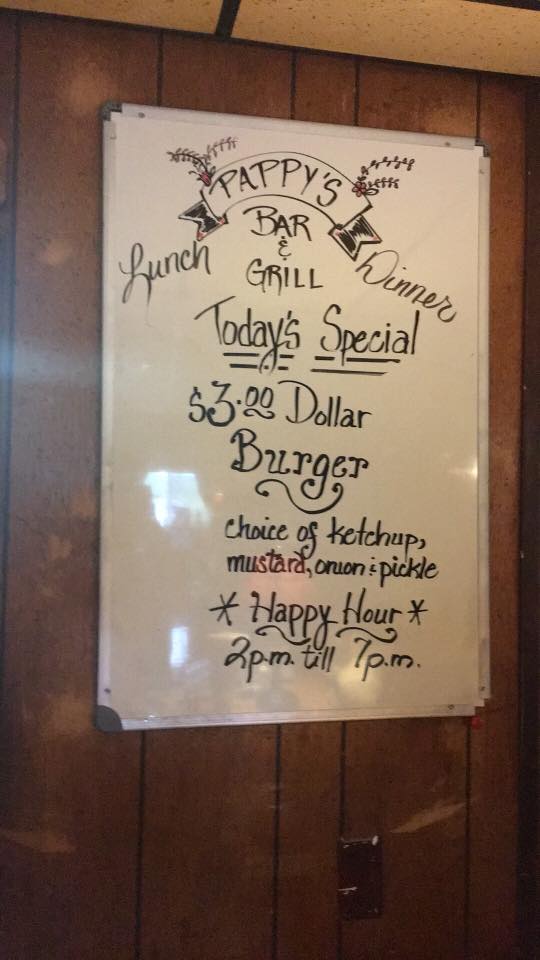 PAPPY'S
BAR
&
GRILL
Lunch
Dinner
Today's Special
$3.00 Dollar
Burger
choice of ketchup,
mustard, onion & pickle
* Happy Hour *
2p.m. till 7p.m.